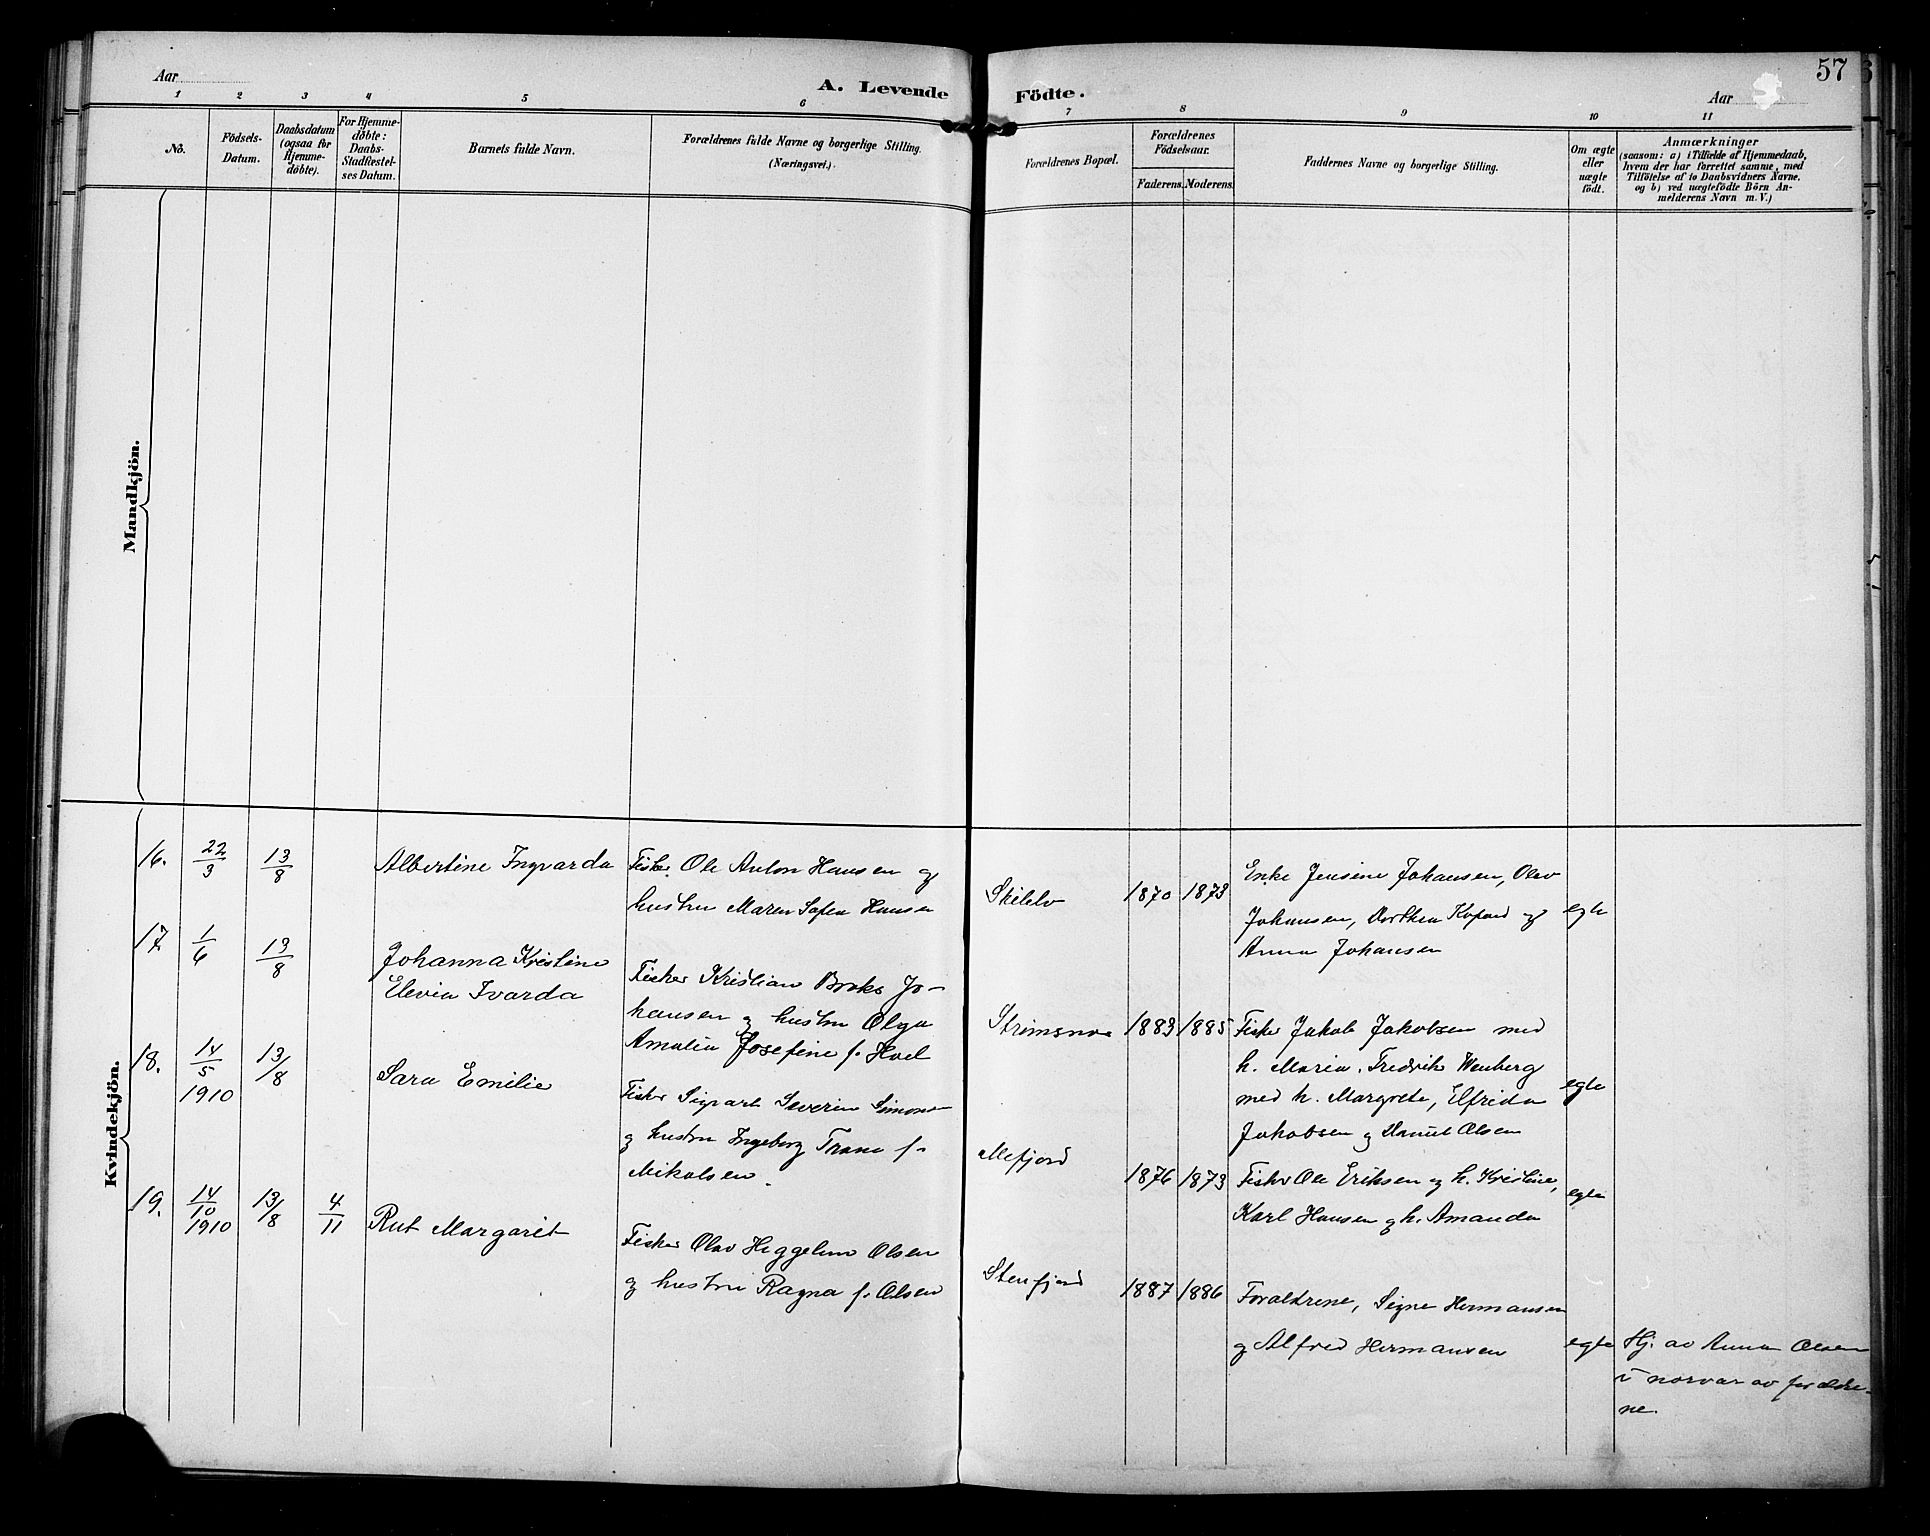 57
Aar
A. Levende Födte.
Aar
1 2 3 4 5 6 7 8 9 10 11
No.
Födsels-
Datum.
Daabsdatum
(ogsaa for
Hjemme-
döbte).
For Hjemme-
döbte:
Daabs-
Stadfæstel-
ses Datum.
Barnets fulde Navn.
Forældrenes fulde Navne og borgerlige Stilling.
(Næringsvei.)
Forældrenes Bopæl.
Forældrenes
Födselsaar.
Faderens. Moderens.
Faddernes Navne og borgerlige Stilling.
Om ægte
eller
uægte
födt.
Anmærkninger
(saasom: a) i Tilfælde af Hjemmedaab,
hvem der har forrettet samme, med
Tilföielse af to Daabsvidners Navne,
og b) ved uægtefödte Börn An-
melderens Navn m. V.)
Mandkjön.
Kvindekjön.
16. 22/3 13/8 Albertine Ingvarda
Fisker Ole Anton Hansen og
hustru Maren Sofia Hansen
1870 1873
Enke Jensine Johansen, Olav
Johansen, Dorthea og
Anna Johansen
egte
17 1/6 13/8 Johanna Kristine
Elevia Ivarda
Fisker Kristian Broks Jo-
hansen og hustru Olga
Amalia Josefine f.
1883 1885
Fisker Jakob Jakobsen med
h. Maria, Fredrik Wenberg
med h. Margrete, Elfrida
Jakobsen og Daniel Olsen
egte
18. 14/5 1910 13/8 Sara Emilie
Fisker Sigvart Severin
og hustru Ingeborg f.
Mikalsen.
Mefjord
1876 1873
Fisker Ole Eriksen og h. Kristine,
Karl Hansen og h. Amanda
egte
19. 14/10 1910 13/8 4/11 Rut Margarit
Fisker Olav Heggelum Olsen
og hustru Ragna f. Olsen
Stenfjord
1887 1886
Foraldrene, Signe Hermansen
og Alfred Hermansen
egte
Hj. av Anna Olsen
i norvar av foraldre-
ne.